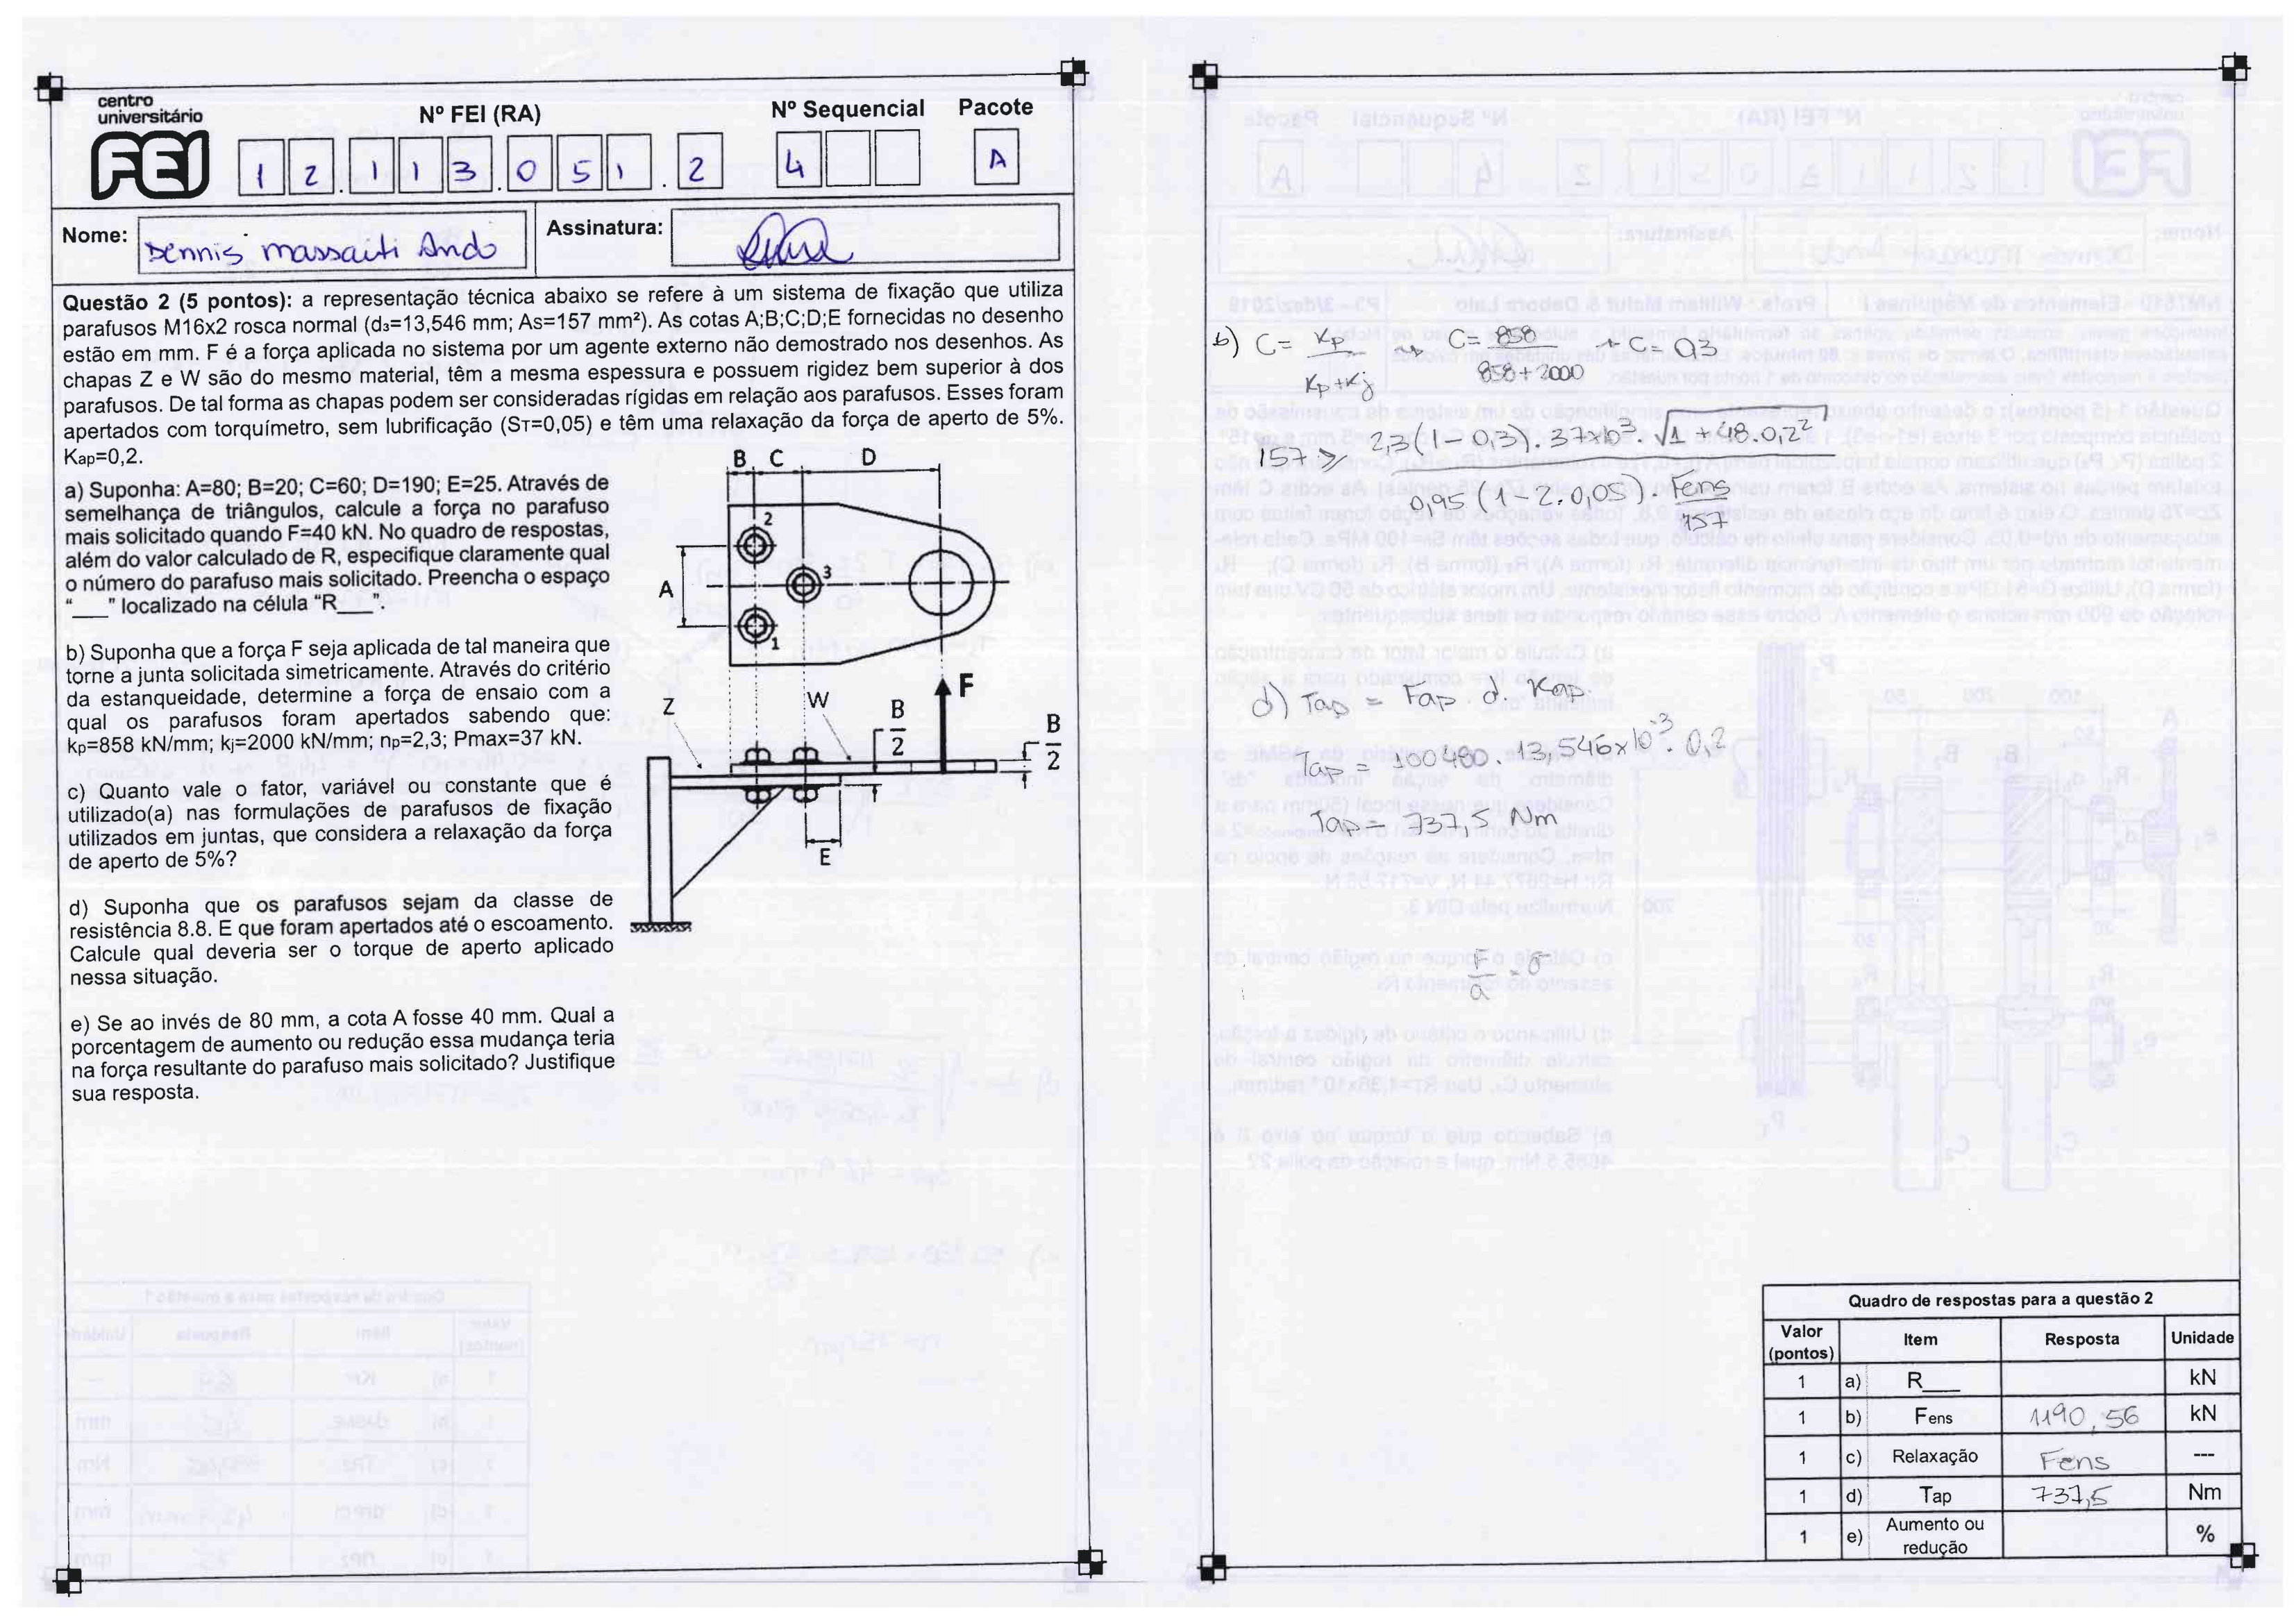 centro
universitário
FEI
Nº FEI (RA)
Nº Sequencial
Pacote
1 2 . 1 1 3 . 0 5 1 . 2
4
A
Nome:
Dennis Massaiti Ando
Assinatura:
Questão 2 (5 pontos): a representação técnica abaixo se refere à um sistema de fixação que utiliza
parafusos M16x2 rosca normal (d₃=13,546 mm; As=157 mm²). As cotas A;B;C;D;E fornecidas no desenho
estão em mm. F é a força aplicada no sistema por um agente externo não demostrado nos desenhos. As
chapas Z e W são do mesmo material, têm a mesma espessura e possuem rigidez bem superior à dos
parafusos. De tal forma as chapas podem ser consideradas rígidas em relação aos parafusos. Esses foram
apertados com torquímetro, sem lubrificação (ST=0,05) e têm uma relaxação da força de aperto de 5%.
Kap=0,2.
a) Suponha: A=80; B=20; C=60; D=190; E=25. Através de
semelhança de triângulos, calcule a força no parafuso
mais solicitado quando F=40 kN. No quadro de respostas,
além do valor calculado de R, especifique claramente qual
o número do parafuso mais solicitado. Preencha o espaço
“___” localizado na célula “R___”.
b) Suponha que a força F seja aplicada de tal maneira que
torne a junta solicitada simetricamente. Através do critério
da estanqueidade, determine a força de ensaio com a
qual os parafusos foram apertados sabendo que:
kp=858 kN/mm; kj=2000 kN/mm; np=2,3; Pmax=37 kN.
c) Quanto vale o fator, variável ou constante que é
utilizado(a) nas formulações de parafusos de fixação
utilizados em juntas, que considera a relaxação da força
de aperto de 5%?
d) Suponha que os parafusos sejam da classe de
resistência 8.8. E que foram apertados até o escoamento.
Calcule qual deveria ser o torque de aperto aplicado
nessa situação.
e) Se ao invés de 80 mm, a cota A fosse 40 mm. Qual a
porcentagem de aumento ou redução essa mudança teria
na força resultante do parafuso mais solicitado? Justifique
sua resposta.
B C D
2
3
A
1
F
Z
W
B/2
B/2
E
b) C = Kp/(Kp+Kj) → C = 858/(858+2000) → C = 0,3
157 ≥ 2,3(1-0,3).37x10³.√1+48.0,2² / 0,95(1-2.0,05).Fens/157
d) Tap = Fap . d. Kap.
Tap = 100480. 13,546x10⁻³. 0,2
Tap = 737,5 Nm
F/a = σ
Quadro de respostas para a questão 2
Valor (pontos) Item Resposta Unidade
1 a) R___ kN
1 b) Fens 1190,56 kN
1 c) Relaxação Fens ---
1 d) Tap 737,5 Nm
1 e) Aumento ou redução %